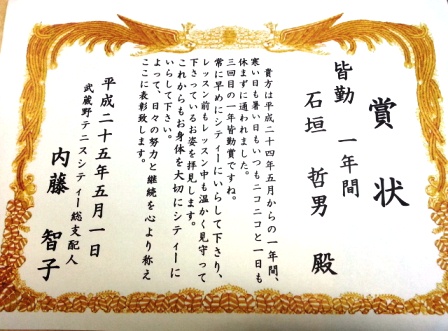 賞状
皆勤 一年間
石垣 哲男 殿
貴方は平成二十四年五月からの一年間、
寒い日も暑い日もいつもニコニコと一日も
休まずに通われました。
三回目の一年皆勤賞ですね。
常に早めにシティーにいらして下さり、
レッスン前もレッスン中も温かく見守って
下さっているお姿を拝見します。
これからもお身体を大切にシティーに
いらして下さい。
よって、日々の努力と継続を心より称え
ここに表彰致します。
平成二十五年五月一日
武蔵野テニスシティー総支配人
内藤 智子